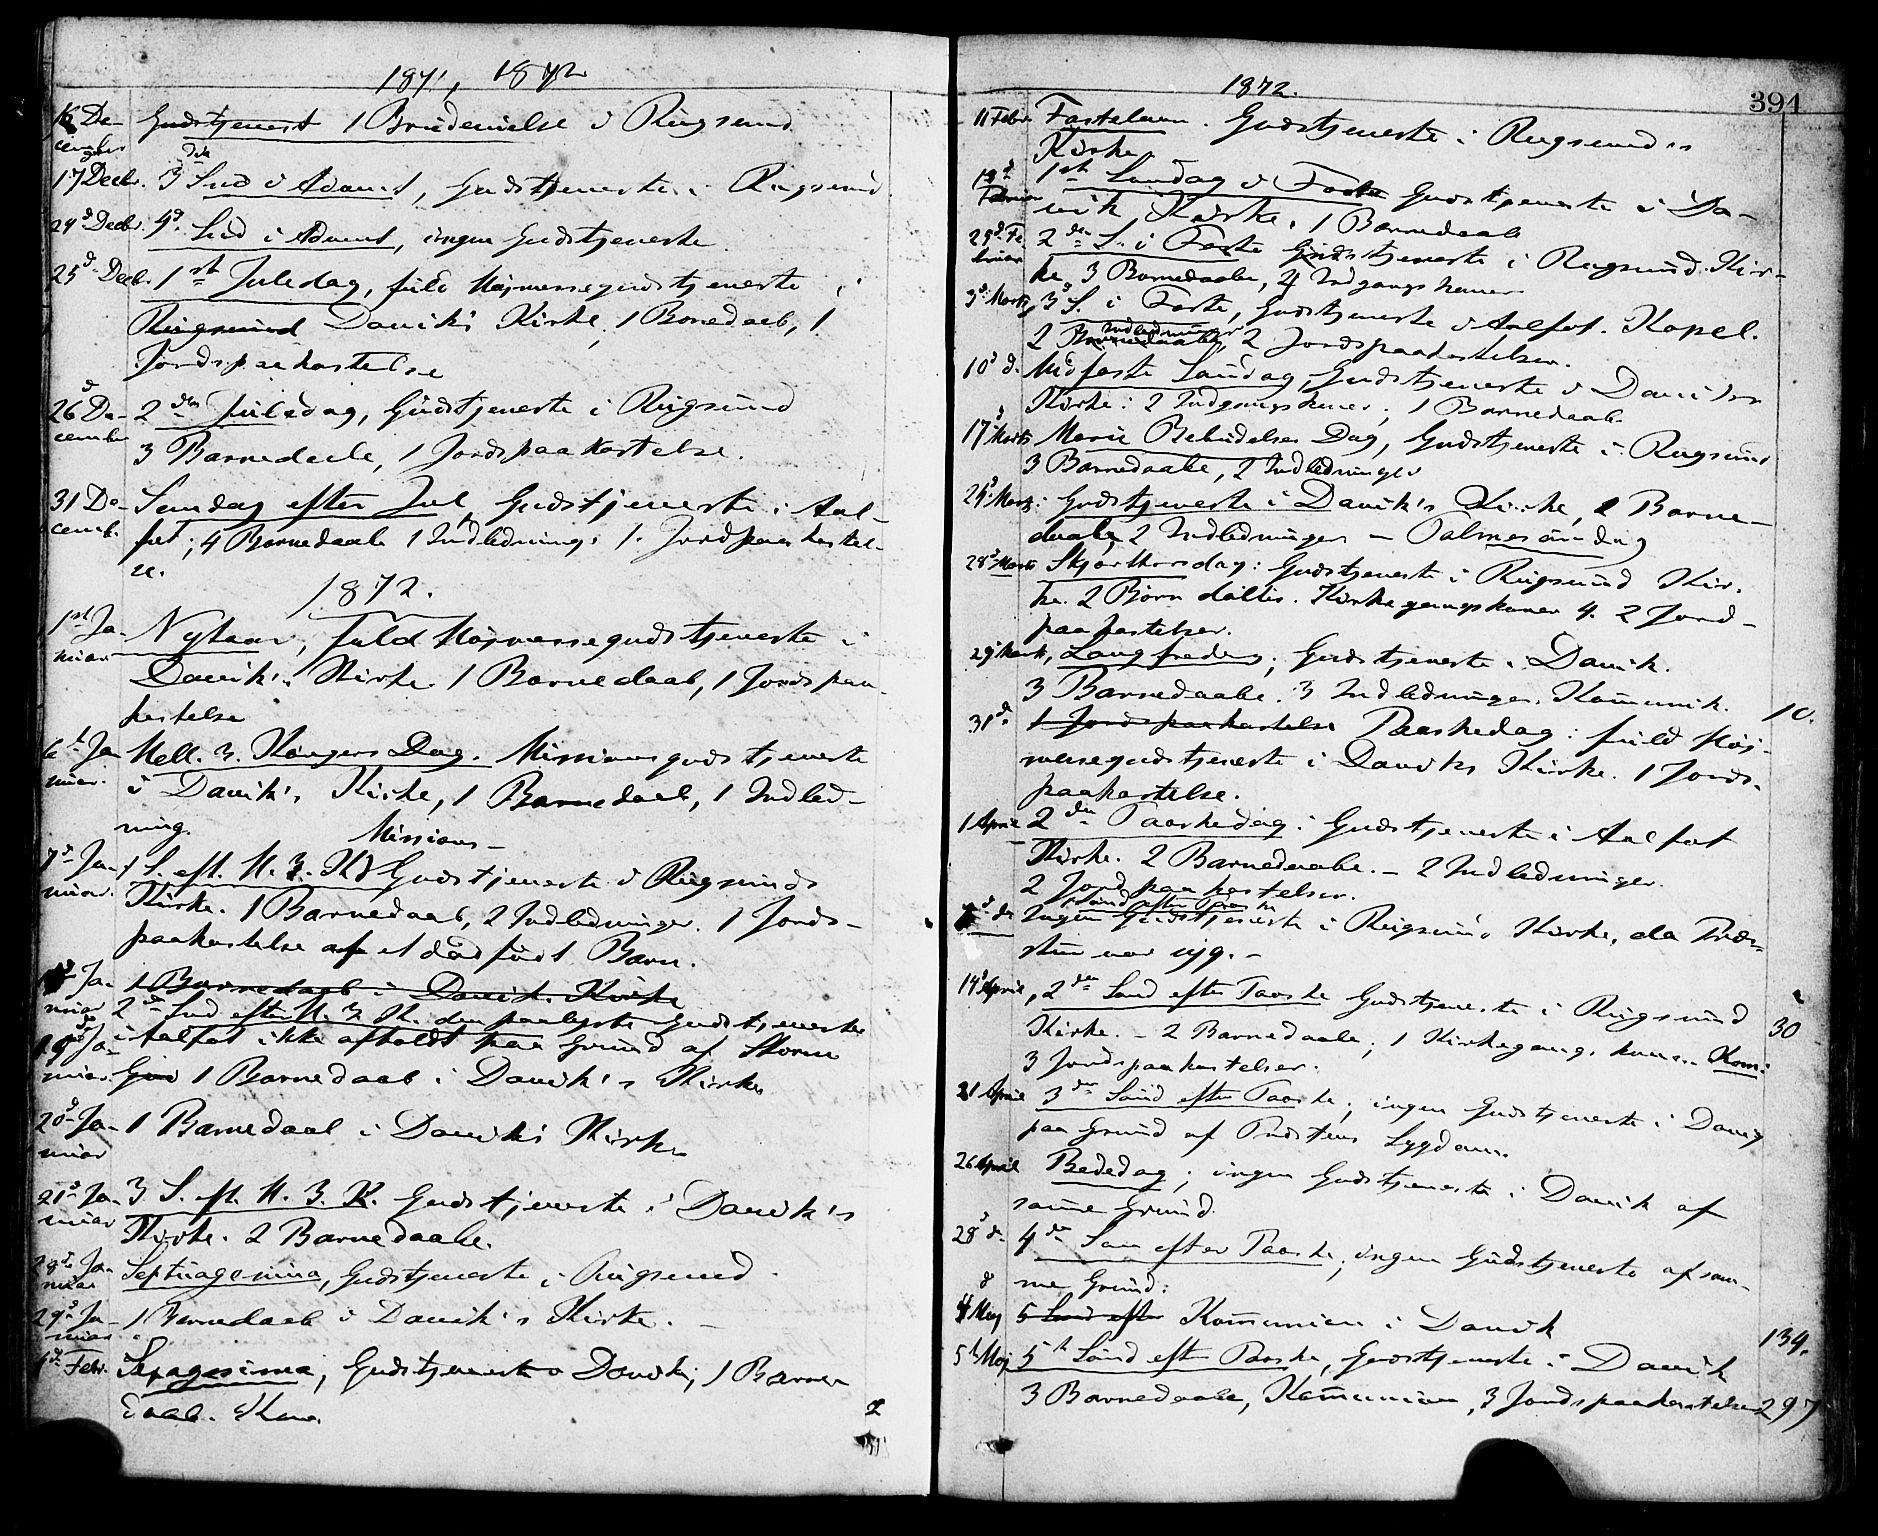 1871, 1872
16 De- Gudstjenest 1 Brudevielse i Rugsund
cember
17 Decbr. 3die Snd i Advent, Gudstjeneste i Rugsund
24d Decbr. 4d Snd i Advent, ingen Gudstjeneste.
25d Decb. 1st Juledag, fuld Højmessegudstjeneste i
Rugsund Daviks Kirke, 1 Barnedaab, 1
Jordspaakastelse
26d De- 2den Juledag, Gudstjeneste i Rugsund
cember
3 Barnedaabe, 1 Jordspaakastelse.
31 De- Sundag efter Jul, Gudstjeneste i Aal-
cemb. fot; 4 Barnedaabe 1 Indledning. 1. Jordpaakastel-
se.
1872.
1st Ja- Nytaar, fuld Højmessegudstjeneste i
nuar
Davik's Kirke 1 Barnedaab, 1 Jordspaa-
kastelse
6t Ja- Hell. 3. Kongers Dag. Missionsgudstjeneste
nuar. i Davik's Kirke, 1 Barnedaab, 1 Indled-
ning.
Missions-
7d Ja- 1 S. eft. H. 3. K. Gudstjeneste i Rugsunds
nuar. Kirke. 1 Barnedaab, 2 Indledninger. 1 Jords-
paakastelse af et dødfødt Barn.
Ja- 1 Barnedaab i Davik Kirke
nuar 2den Snd efter H. 3. K. den paalyste Gudstjeneste
i Aalfot ikke afholdt paa Grund af Storm
19d Ja-
nuar. 1 Barnedaab i Davik's Kirke
20d Ja- 1 Barnedaab i Davik's Kirke
nuar
21d Ja- 3 S. eft. H. 3. K. Gudstjeneste i Davik's
nuar Kirke. 2 Barnedaabe.
28d Ja- Septuagesima, Gudstjeneste i Rugsund.
nuar
29d Ja- 1 Barnedaab i Davik's Kirke.
nuar
4d Febr. Sexagesima, Gudstjeneste i Davik; 1 Barne
daab.
2
1872.
394
11 Febr. Fastelavn. Gudstjeneste i Rugsunds
Kirke
18d 1st Søndag i Faste Gudstjeneste i Da-
Februar vik Kirke. 1 Barnedaab
25d Fe- 2den S. i Faste Gudstjeneste i Rugsund Kir-
bruar ke 3 Barnedaabe, 4 Indgangskoner
3d Marts, 3d S. i Faste, Gudstjeneste i Aalfot. Kapel.
Indledninger
2 Barnedaabe, 2 Jordspaakastelser.
10d d. Midfaste Søndag, Gudstjeneste i Daviks
Kirke: 2 Indgangskoner; 1 Barnedaab.
17d Marts Mariæ Bebudelses Dag, Gudstjeneste i Rugsund
3 Barnedaabe, 2 Indledninger
24d Marts: Gudstjeneste i Davik's Kirke, 2 Barne-
daabe, 2 Indledninger – Palmesøndag
28d Marts Skjærthorsdag: Gudstjeneste i Rugsund Kir-
ke. 2 Børn døbtes. Kirkegangskoner 4. 2 Jord-
paakastelser.
29 Marts, Langfredag; Gudstjeneste i Davik.
3 Barnedaabe. 3 Indledninger. Kommunik. 10.
31d 1 Jordspaakastelse Paaskedag: fuld Høj-
messegudstjeneste i Daviks Kirke. 1 Jords-
paakastelse.
1 April 2den Paaskedag: Gudstjeneste i Aalfot
Kirke. 2 Barnedaabe. – 2 Indledninger.
2 Jordpaakastelser.
1 Sønd efter Paaske
7d d. Ingen Gudstjeneste i Rugsund Kirke, da Præ-
sten var syg. –
14d April, 2den Sønd efter Paaske Gudstjeneste i Rugsund
Kirke. – 2 Barnedaabe; 1 Kirkegangskone. Kom: 30
3 Jordspaakastelser.
21 April 3die Sønd efter Paaske; ingen Gudstjeneste i Davig
paa Grund af Præstens Sygdom.
26 April Bededag; ingen Gudstjeneste i Davik af
samme Grund.
28d d. 4de Søn efter Paaske; ingen Gudstjeneste af sam-
me Grund:
4d Maj 5 Sønd efter Kommunion i Davik 134.
5t Maj 5t Sønd efter Paaske, Gudstjeneste i Davik
3 Barnedaabe, Kommunion, 3 Jordspaakastelser 297